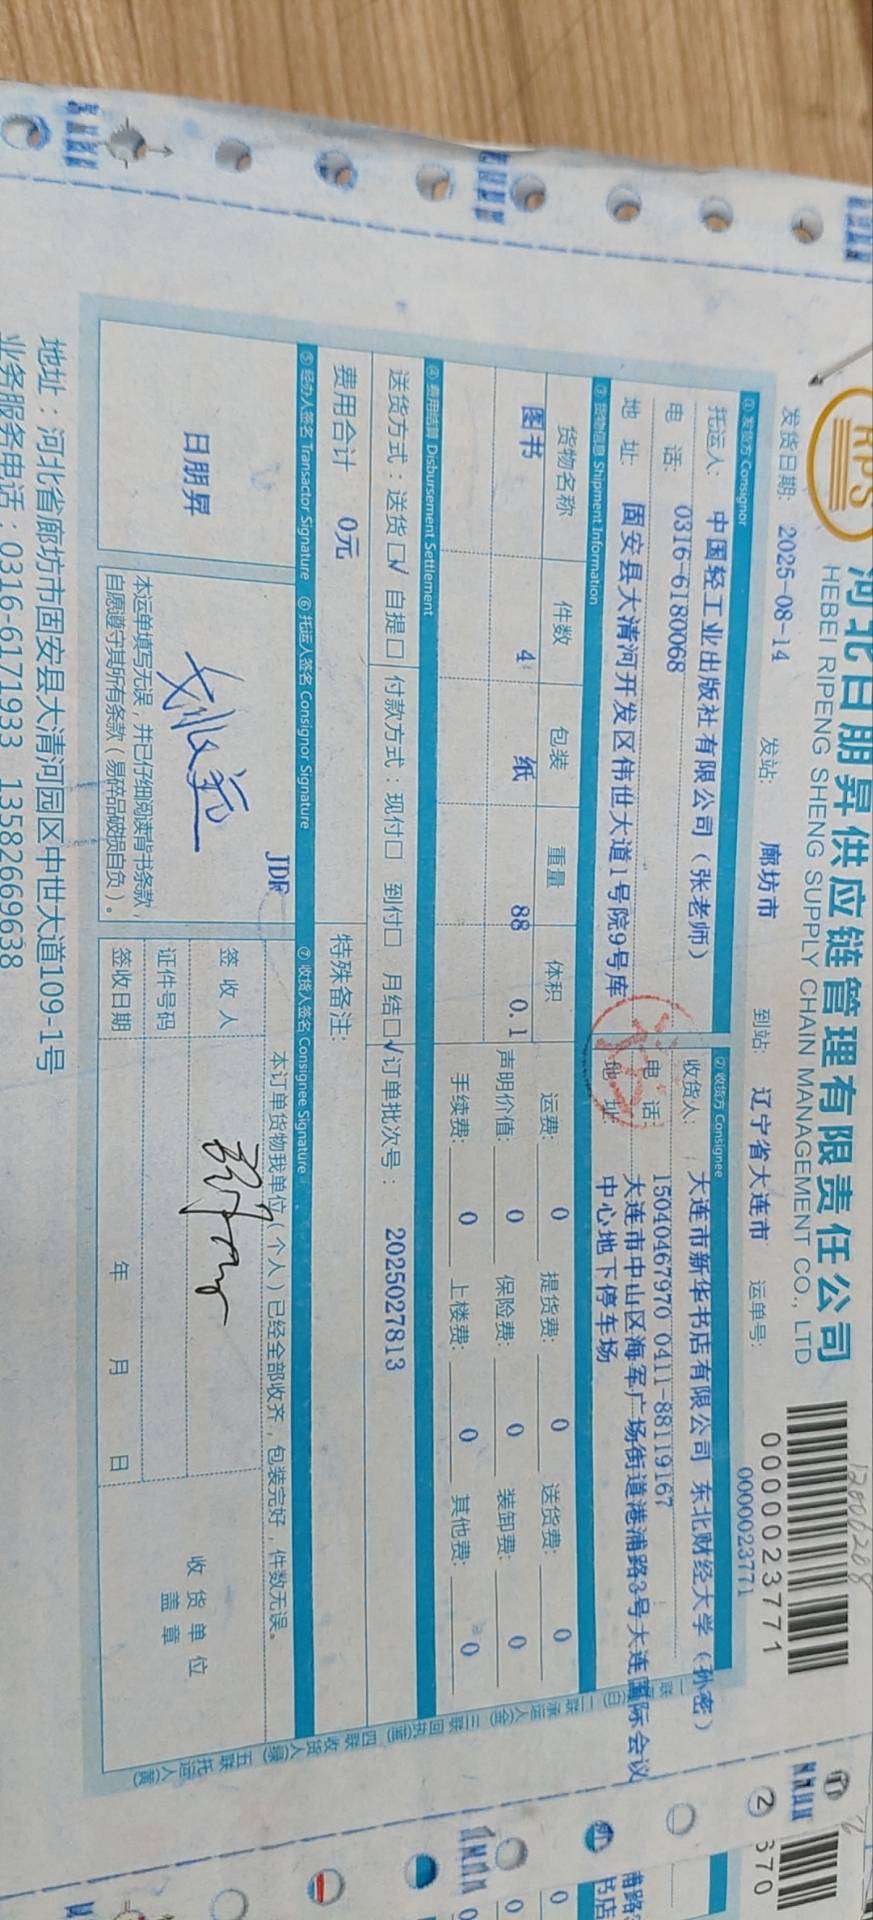 河北日朋昇供应链管理有限责任公司
HEBEI RIPENG SHENG SUPPLY CHAIN MANAGEMENT CO., LTD
RPS
12006208
0000023771
0000023771
发货日期: 2025-08-14 发站: 廊坊市 到站: 辽宁省大连市 运单号:
① 发货方 Consignor ② 收货方 Consignee
托运人: 中国轻工业出版社有限公司（张老师） 收货人: 大连市新华书店有限公司 东北财经大学（孙密）
电 话: 0316-6180068 电 话: 15040467970 0411-88119167
地 址: 固安县大清河开发区伟世大道1号院9号库 地 址: 大连市中山区海军广场街道港浦路3号大连国际会议
中心地下停车场
③ 货物信息 Shipment Information
货物名称 件数 包装 重量 体积 运费: 0 提货费: 0 送货费: 0
图书 4 纸 88 0.1 声明价值: 0 保险费: 0 装卸费: 0
手续费: 0 上楼费: 0 其他费: 0
④ 费用结算 Disbursement Settlement
送货方式：送货□√ 自提□ 付款方式：现付□ 到付□ 月结□√ 订单批次号： 2025027813
费用合计 0元 特殊备注:
⑤ 经办人签名 Transactor Signature ⑥ 托运人签名 Consignor Signature ⑦ 收货人签名 Consignee Signature
JDR
日朋昇
本运单填写无误，并已仔细阅读背书条款，
自愿遵守其所有条款（易碎品破损自负）。
本订单货物我单位（个人）已经全部收齐，包装完好，件数无误。
签 收 人
证件号码
签收日期 年 月 日
收货单位
盖 章
一联 (白) 二联承运人(金) 三联回执(蓝) 四联收货人(绿) 五联托运人(黄)
地址：河北省廊坊市固安县大清河园区中世大道109-1号
业务服务电话：0316-6171933 13582669638